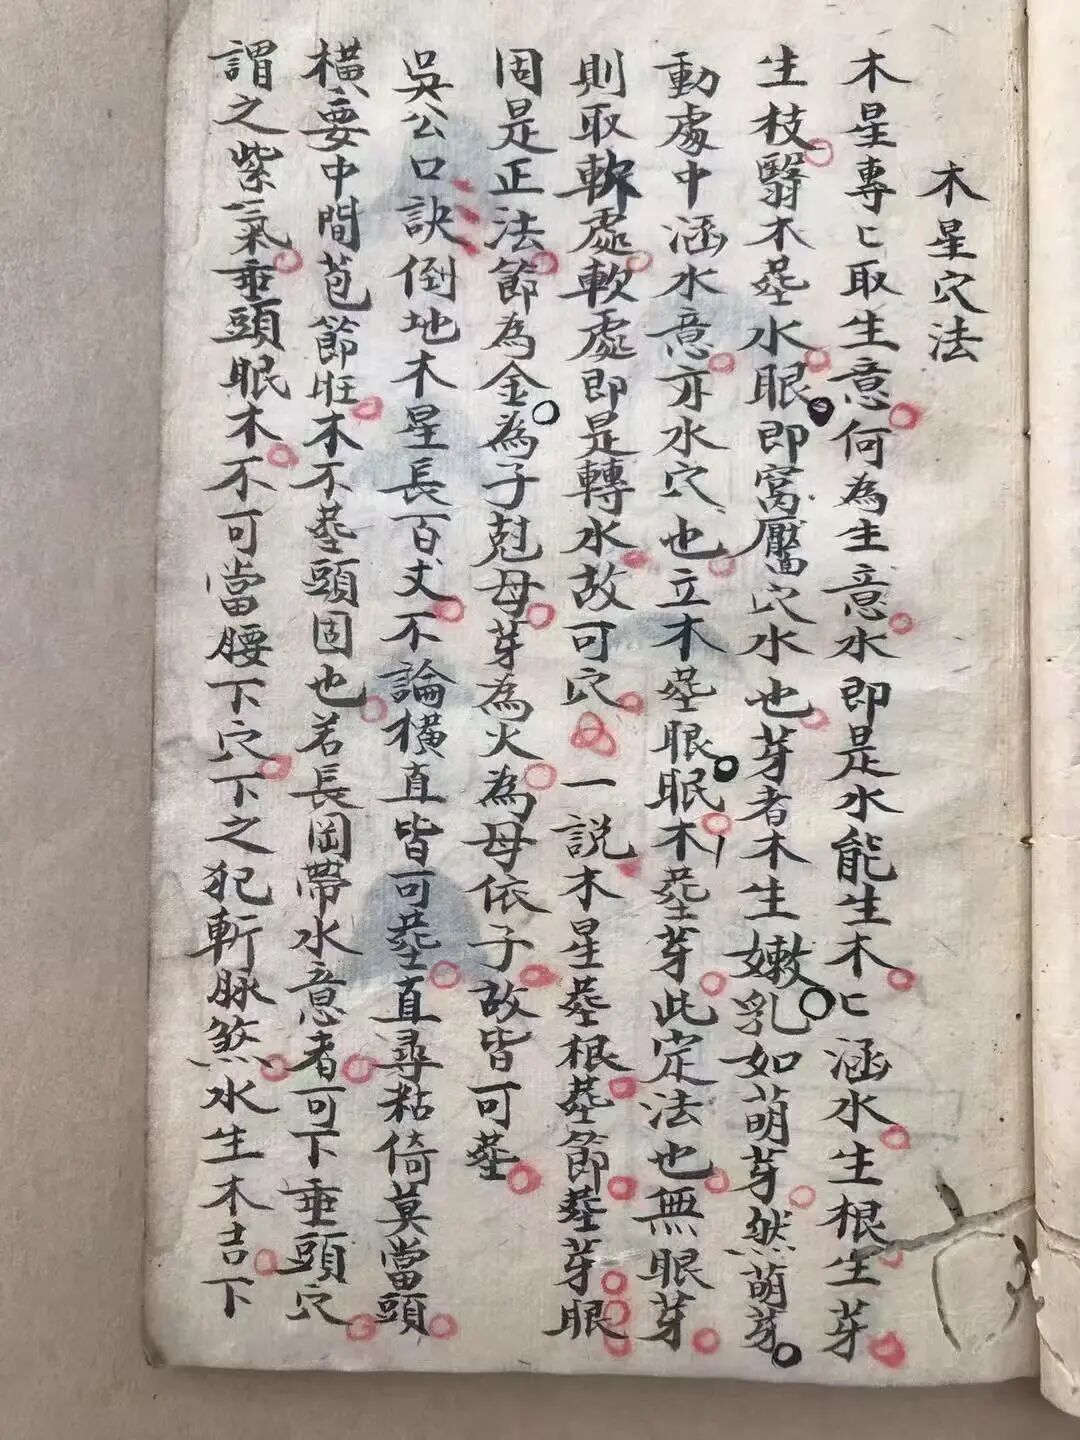 木星穴法
木星專〻取生意何為生意水即是水能生木〻涵水生根生芽
生枝翳木塟水眼即窩靨穴水也芽者木生嫩乳如萌芽然萌芽
動處中涵水意亦水穴也立木塟眼眠木塟芽此定法也無眼芽
則取軟處軟處即是轉水故可穴一説木星塟根塟節塟芽眼
固是正法節為金為子尅母芽為火為母依子故皆可塟
吳公口訣倒地木星長百丈不論橫直皆可塟直尋粘倚莫當頭
橫要中間苞節旺木不塟頭固也若長岡帶水意者可下垂頭穴
謂之紫氣垂頭眠木不可當腰下穴下之犯斬脉煞水生木吉下